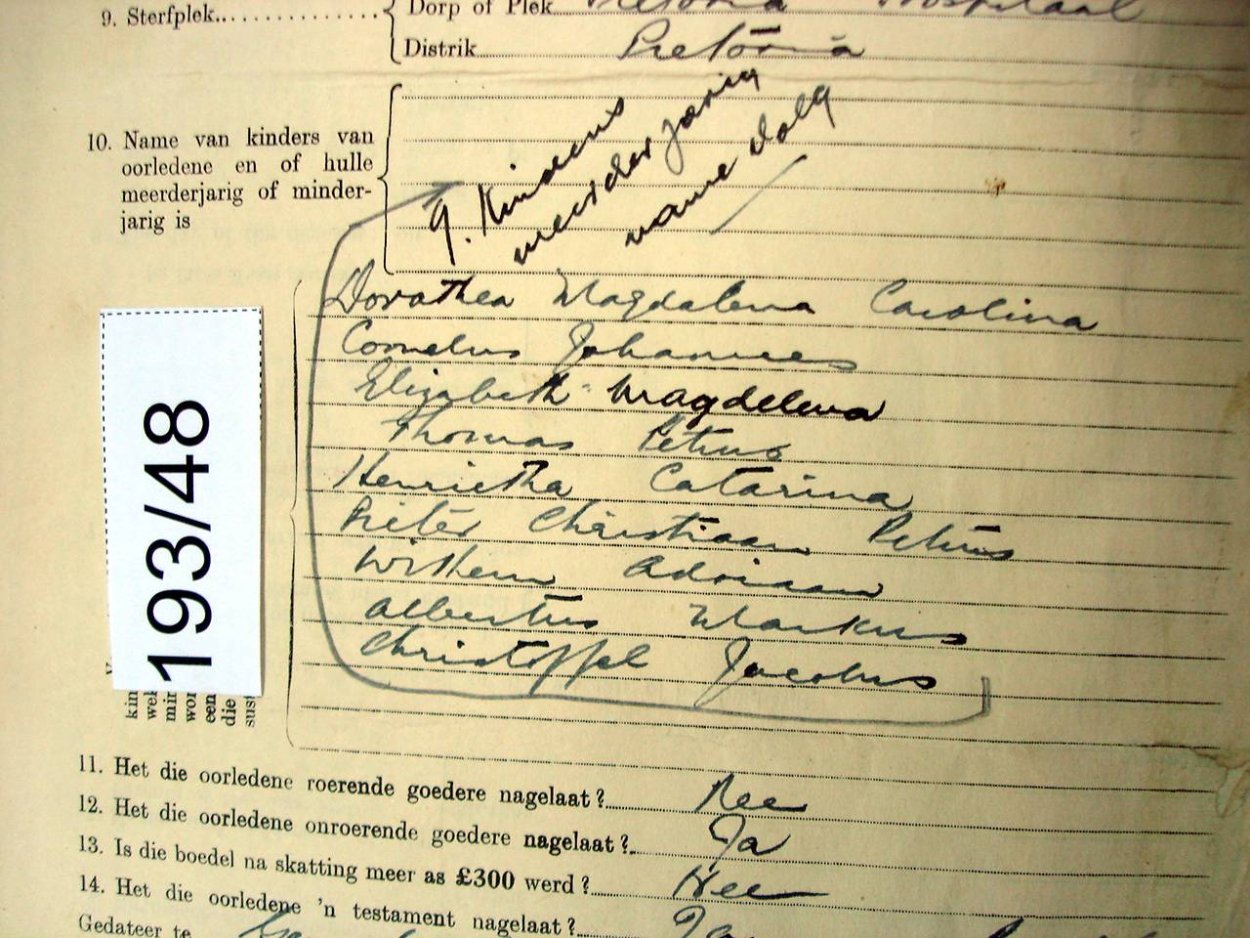 9. Sterfplek.............. Dorp of Plek Pretoria Hospitaal
Distrik Pretoria
10. Name van kinders van
oorledene en of hulle
meerderjarig of minder-
jarig is
9. Kinders
meerderjarig
name volg
Dorothea Magdalena Carolina
Cornelius Johannes
Elizabeth Magdelena
Thomas Petrus
Henrietha Catarina
Pieter Christiaan Petrus
Willem Adriaan
Albertus Markus
Christoffel Jacobus
193/48
kin
wel
min
wor
een
die
11. Het die oorledene roerende goedere nagelaat? Nee
12. Het die oorledene onroerende goedere nagelaat? Ja
13. Is die boedel na skatting meer as £300 werd? Nee
14. Het die oorledene 'n testament nagelaat? Ja
Gedateer te